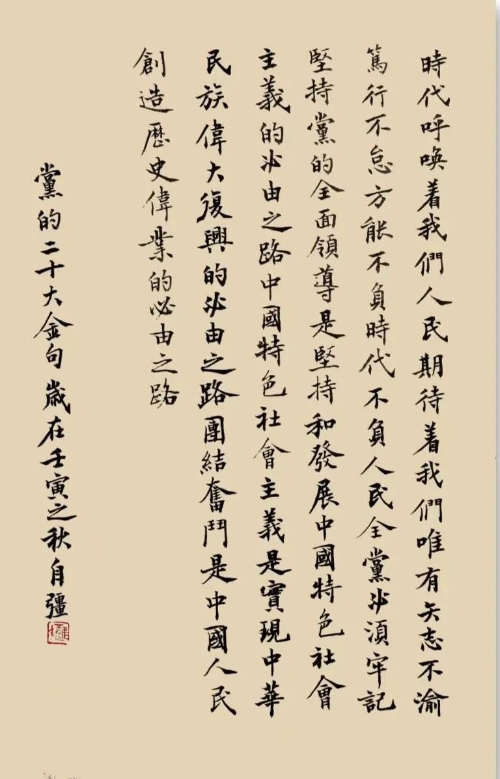 時代呼喚着我們人民期待着我們唯有矢志不渝
篤行不怠方能不負時代不負人民全黨必須牢記
堅持黨的全面領導是堅持和發展中國特色社會
主義的必由之路中國特色社會主義是實現中華
民族偉大復興的必由之路團結奮鬥是中國人民
創造歷史偉業的必由之路
黨的二十大金句歲在壬寅之秋自彊